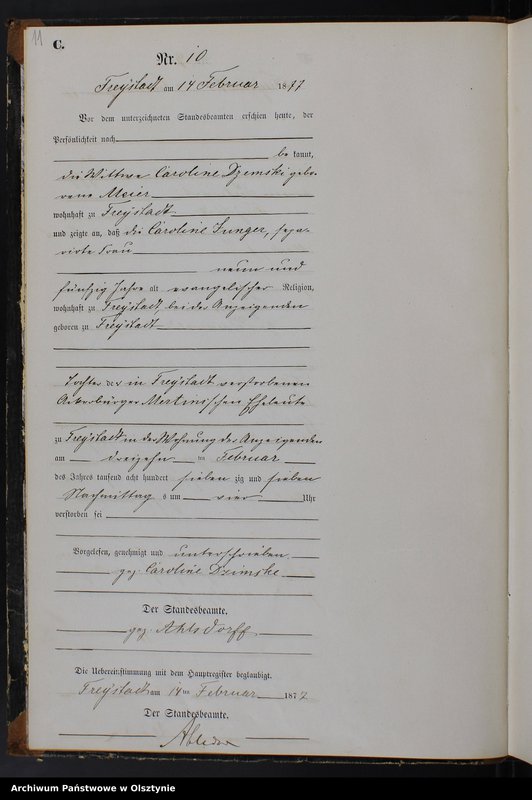 11
C.
Nr. 10
Freystadt am 14 Februar 1877
Vor dem unterzeichneten Standesbeamten erschien heute, der
Persönlichkeit nach
be kannt,
die Wittwe Caroline Dzemski gebo-
rene Meier
wohnhaft zu Freystadt
und zeigte an, daß die Caroline Junger, sepa-
rirte Frau
neun und
fünfzig Jahre alt evangelischer Religion,
wohnhaft zu Freystadt, bei der Anzeigenden
geboren zu Freystadt
Tochter der in Freystadt verstorbenen
Ackerbürger Mertinschen Eheleute
zu Freystadt in der Wohnung der Anzeigenden
am dreizehn ten Februar
des Jahres tausend acht hundert sieben zig und sieben
Nachmittag s um vier Uhr
verstorben sei
Vorgelesen, genehmigt und unterschrieben
gez. Caroline Dzimske
Der Standesbeamte.
gez. Ahlsdorff
Die Uebereinstimmung mit dem Hauptregister beglaubigt.
Freystadt am 14 ten Februar 1877
Der Standesbeamte.
Archiwum Państwowe w Olsztynie